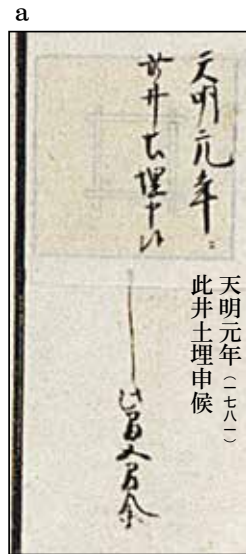 a
天明元年ニ
此井土埋申候
天明元年（一七八一）
此井土埋申候